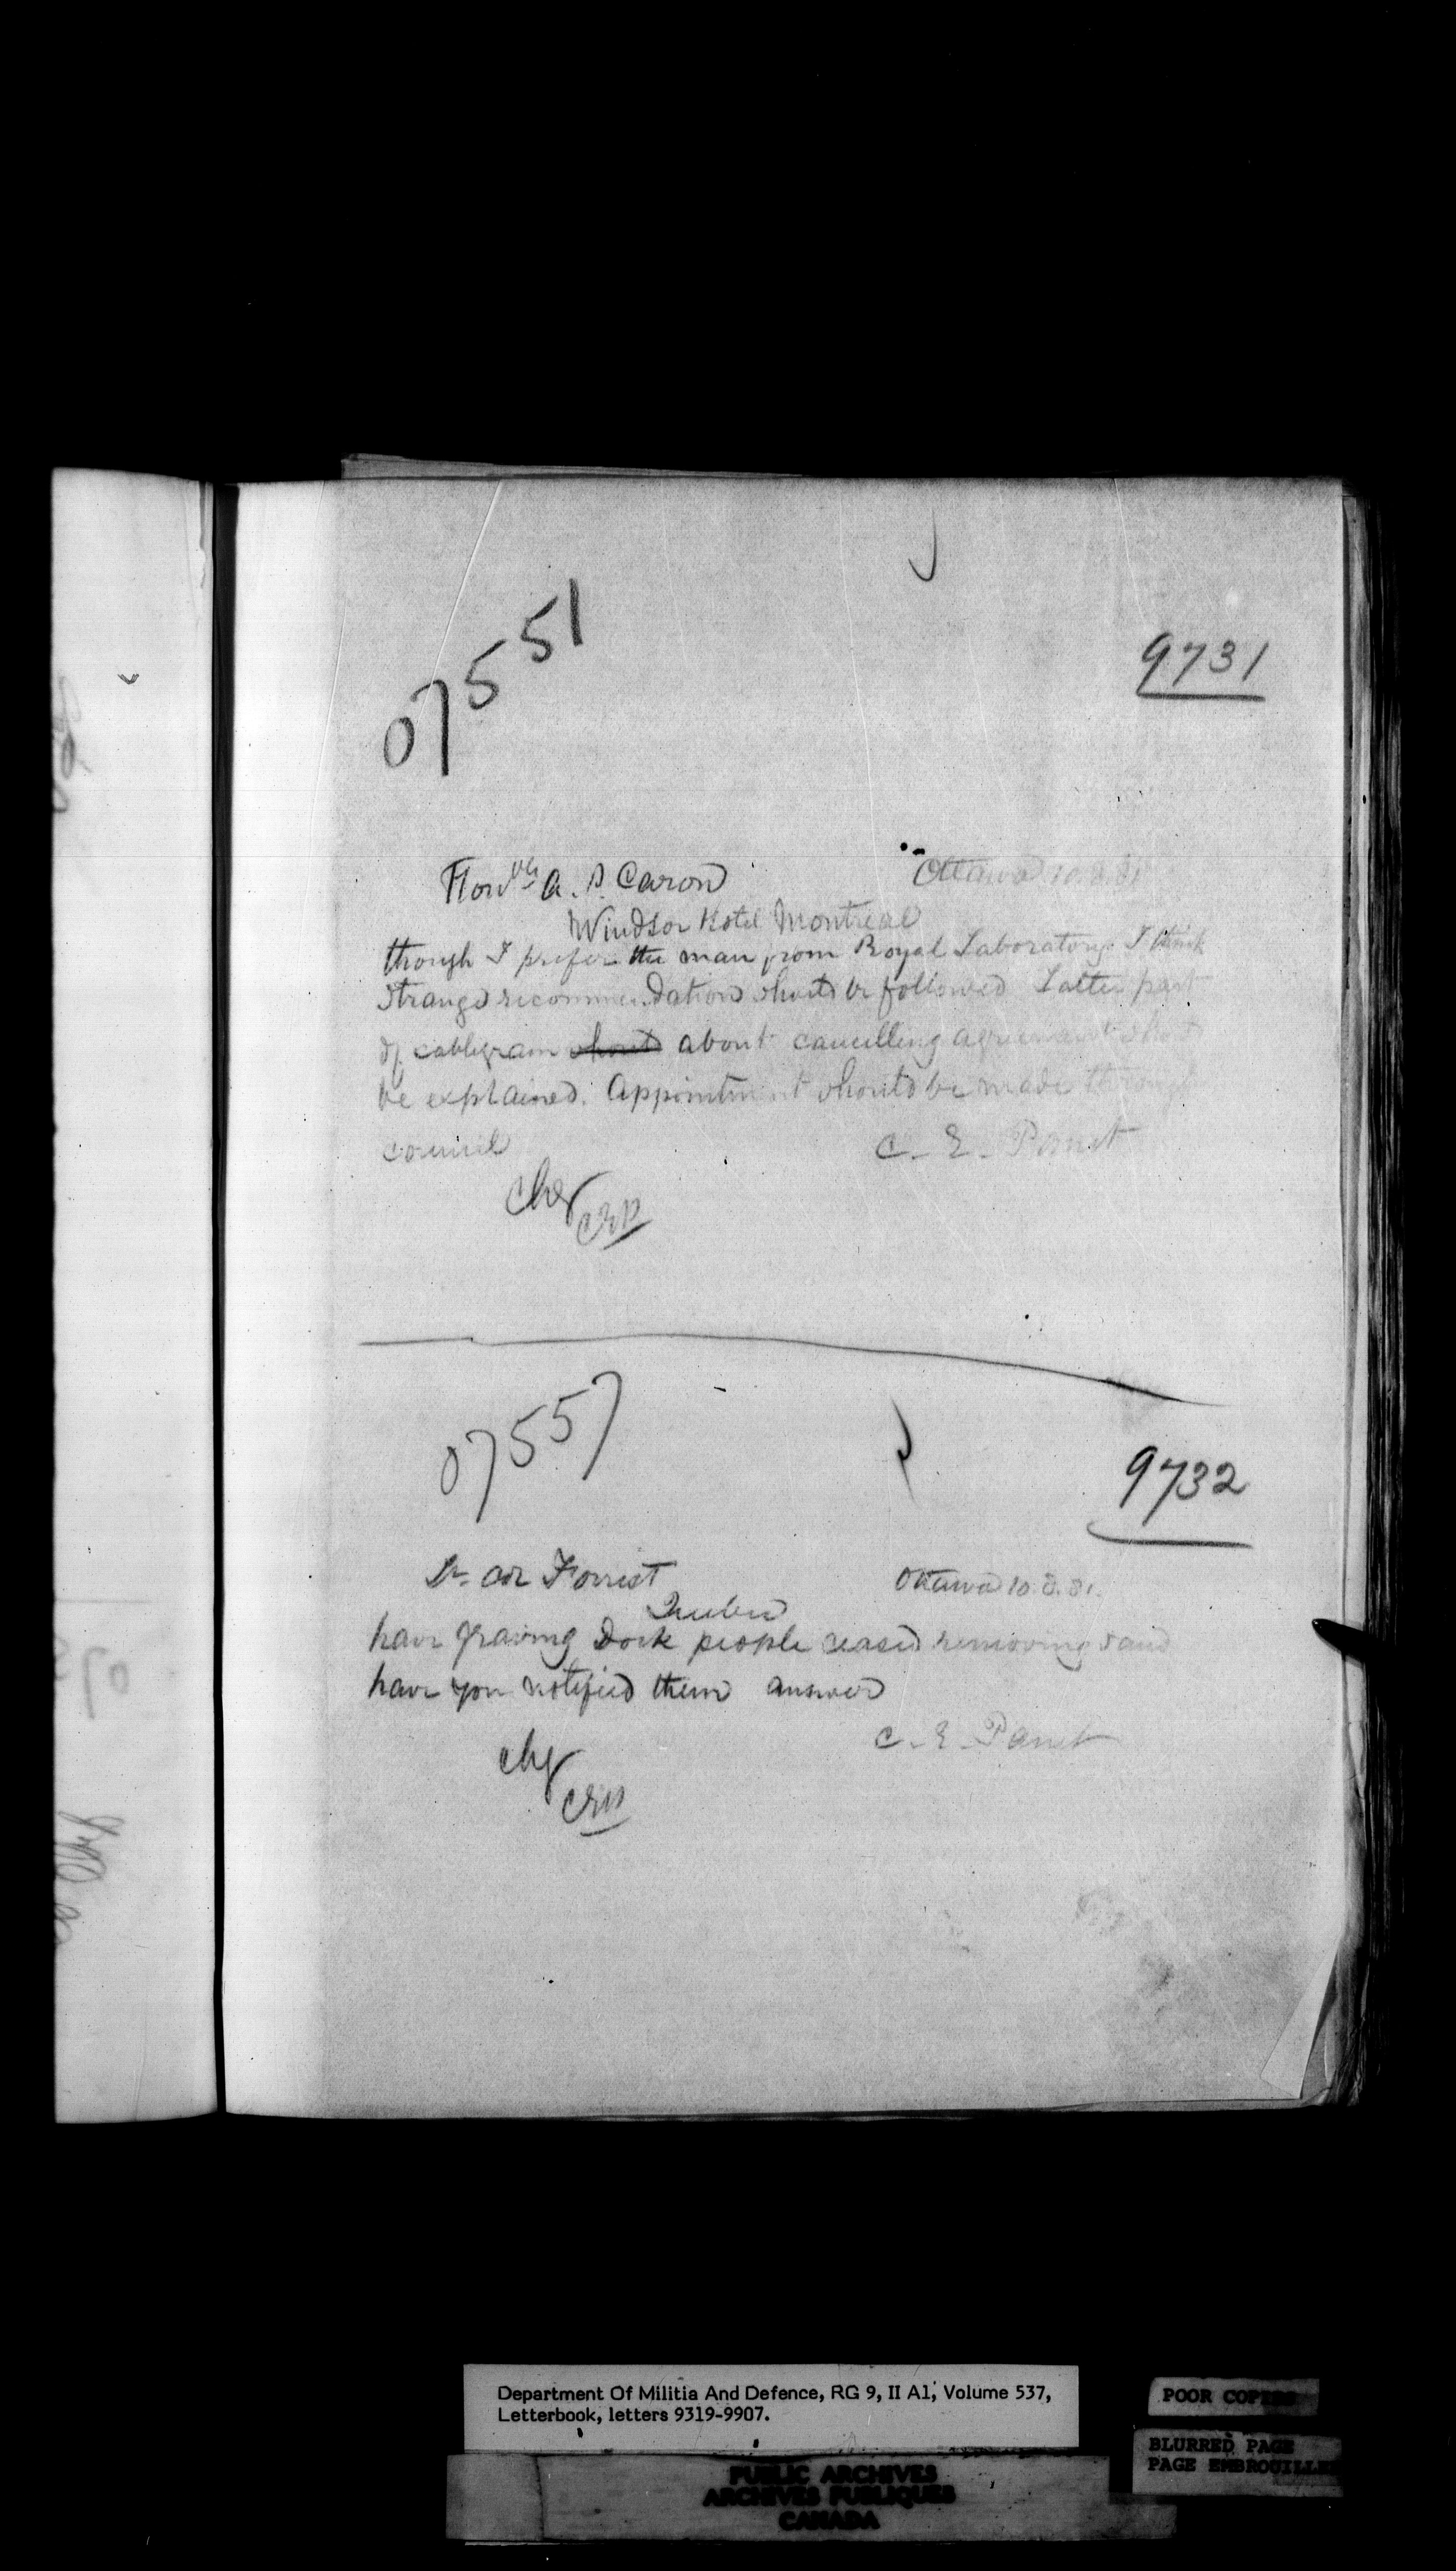 07551
9731
Honble A. P. Caron
Ottawa 10.8.81
Windsor Hotel Montreal
though I prefer the man from Royal Laboratory I think
Stranges recommendation should be followed Latter part
of cablegram should about cancelling agreement should
be explained. Appointment should be made through
council
C. E. Panet
Chg
CEP
07557
9732
Lt Col Forrest
Ottawa 10.8.81.
Quebec
have graving Dock people ceased removing sand
have you notified them answer
C. E. Panet
chg
CEP
Department Of Militia And Defence, RG 9, II A1, Volume 537,
Letterbook, letters 9319-9907.
POOR COPIES
BLURRED PAGE
PAGE EMBROUILLEE
PUBLIC ARCHIVES
ARCHIVES PUBLIQUES
CANADA